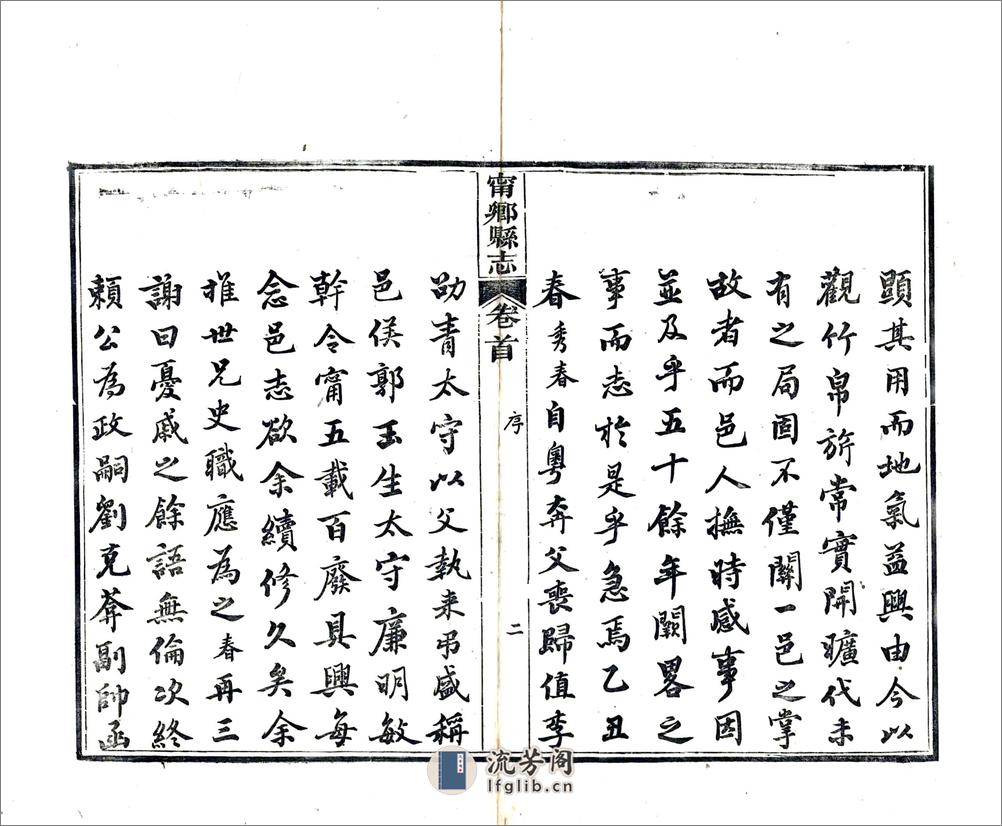 顕其用而地氣益興由今以
觀竹帛旂常實開曠代未
有之局固不僅關一邑之掌
故者而邑人撫時感事因
並及乎五十餘年闕畧之
事而志於是乎急焉乙丑
春秀春自粵奔父喪歸值李
甯鄉縣志
卷首
序
二
劭青太守以父執来弔盛稱
邑侯郭玉生太守廉明敏
幹令甯五載百廢具興每
念邑志欲余續修久矣余
推世兄史職應為之春再三
謝曰憂戚之餘語無倫次終
頼公為政嗣劉克菴副帥函
流芳阁
lfglib.cn